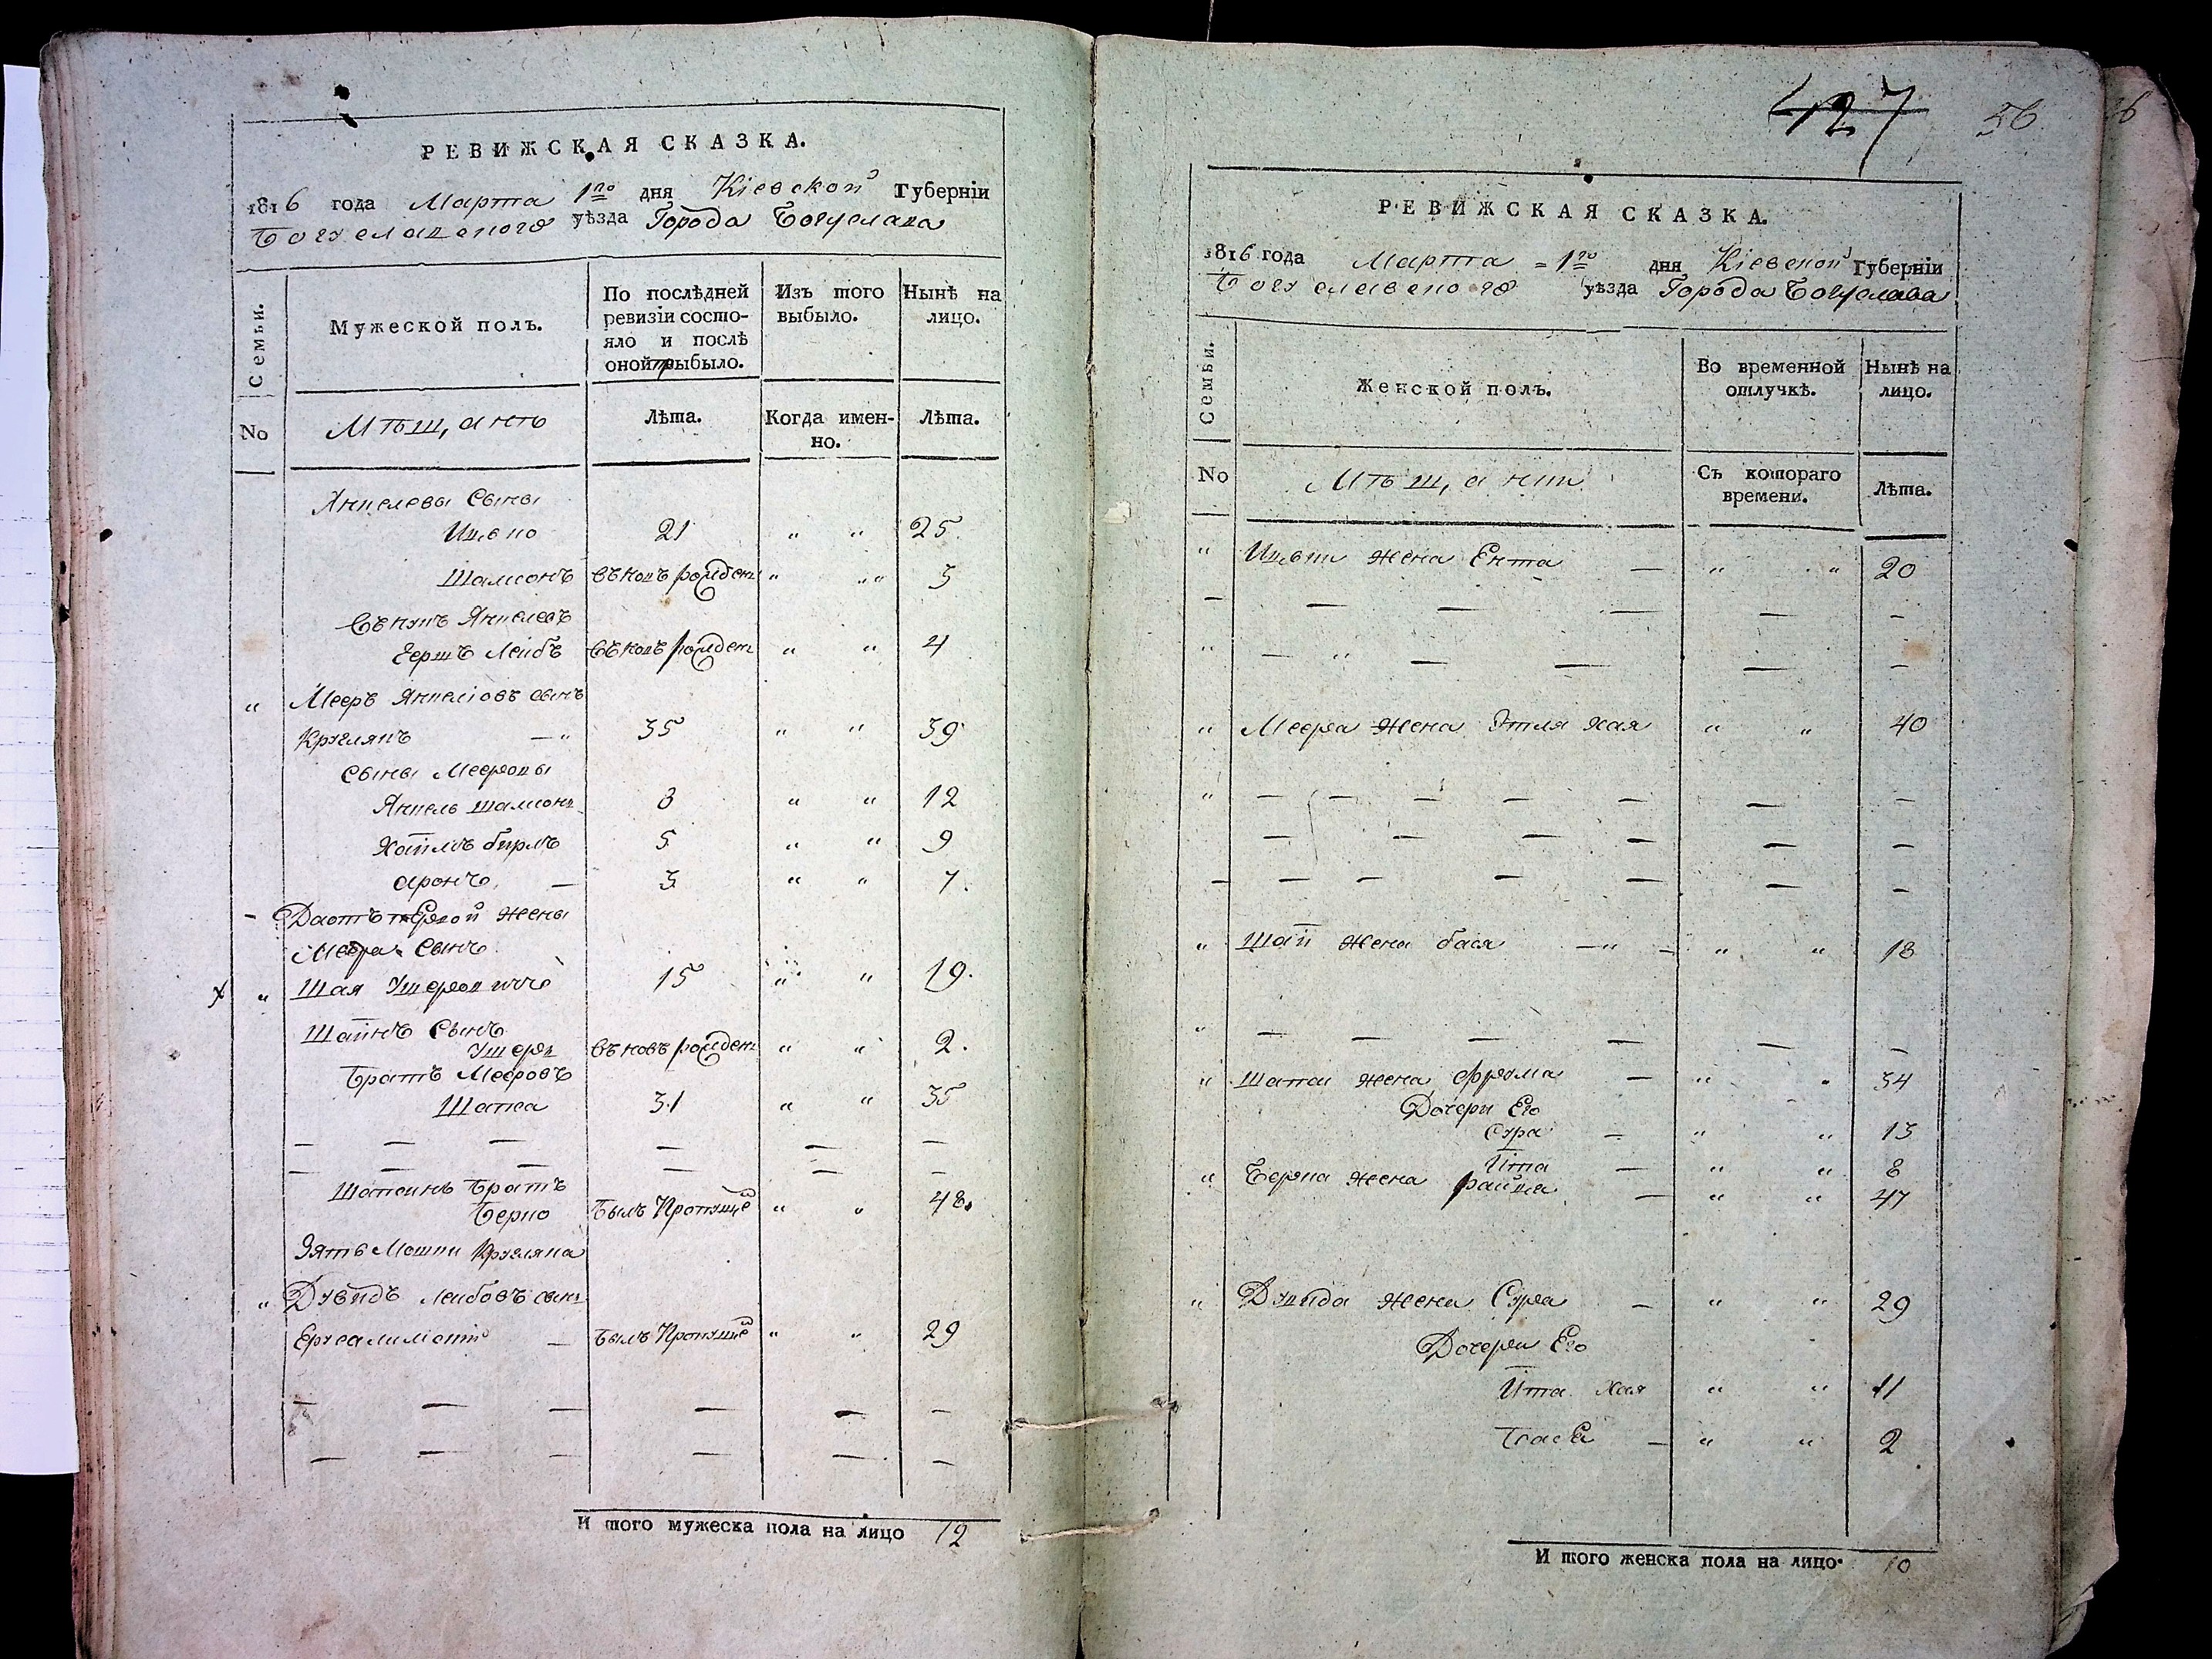 РЕВИЖСКАЯ СКАЗКА.
1816 года Марта 1го дня Кіевской Губерніи
Богуславского уѣзда Города Богуслава
Семьи.
Мужеской полъ.
По послѣдней ревизіи состояло и послѣ оной прыбыло.
Изъ того выбыло.
Нынѣ на лицо.
No
Мѣщанѣ
Лѣта.
Когда именно.
Лѣта.
Янкелевы Сыны
Ицько 21 " " 25
Шлиомъ въ новъ рожден " " 3
Внукъ Янкелевъ
Гершъ Лейбъ въ новъ рожден " " 4
" Мееръ Янкеліовъ сынъ
Круглякъ — " 35 " " 39
Сыны Мееровы
Янкель 8 " " 12
Хаимъ 5 " " 9
Аронъ — 3 " " 7.
Меера Сынъ
х " Шая 15 " " 19.
Шаинъ Сынъ
въ новъ рожден " " 2.
Братъ Мееровъ
Шапса 31 " " 35
— — — — — —
— — — — — —
Шапсинъ Братъ
Берко Былъ Пропущё " " 48.
Зять Мошки Кругляка
" Дувидъ Лейбовъ сынъ
— Былъ Пропущё " " 29
— — — — — —
— — — — — —
И того мужеска пола на лицо 12
427 56
РЕВИЖСКАЯ СКАЗКА.
1816 года Марта 1го дня Кіевской Губерніи
Богуславского уѣзда Города Богуслава
Семьи.
Женской полъ.
Во временной отлучкѣ.
Нынѣ на лицо.
No
Мѣщанки
Съ котораго времени.
Лѣта.
" Ицьки жена Ента — " " 20
— — — — — —
" — " — — — —
" Меера жена Этля Хая " " 40
" — — — — — — —
— — — — — —
— — — — — — — —
" Шаи жена Бася — " — " " 18
" — — — — — —
" Шапси жена Фрума — " " 34
Дочери Его
Сура — " " 13
Ита — " " 8
" Берка жена Райца — " " 47
" Дувида жена Сура — " " 29
Дочери Его
Ита Хая " " 11
— " " 2
И того женска пола на лицо. 10